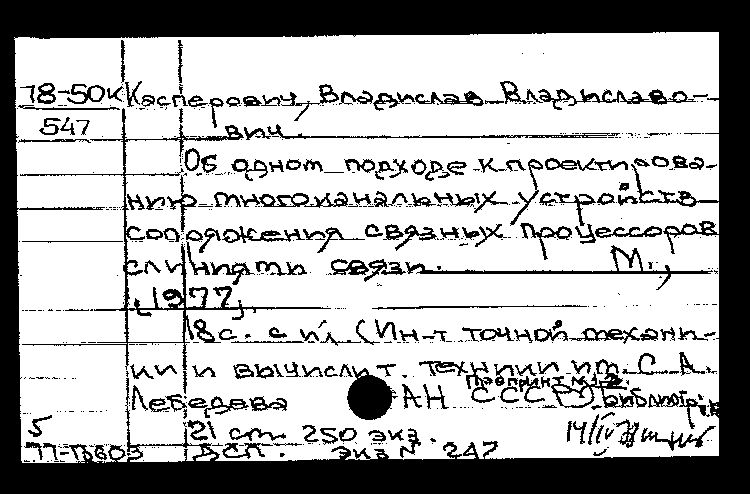 78-50к Касперович, Владислав Владиславо-
547 вич.
Об одном подходе к проектирова-
нию многоканальных устройств
сопряжения связных процессоров
с линиями связи. М.,
[1977].
18 с. с ил. (Ин-т точной механи-
ки и вычислит. техники им. С. А.
Препринт № 12.
Лебедева АН СССР). Библиогр.:
5 21 ст. 250 экз.
ДСП. Экз № 247